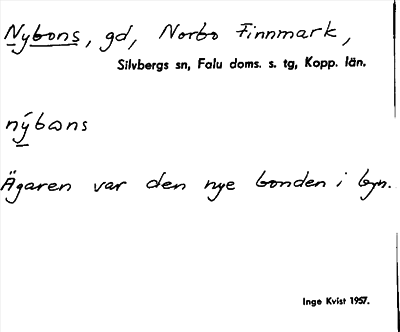 Nybons, gd, Norbo Finnmark,
Silvbergs sn, Falu doms. s. tg, Kopp. län.
nýbons
Ägaren var den nye bonden i byn.
Inge Kvist 1957.